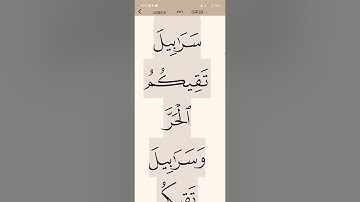 سَرَٰبِيلَ
تَقِيكُمُ
ٱلْحَرَّ
وَسَرَٰبِيلَ
تَقِيكُم